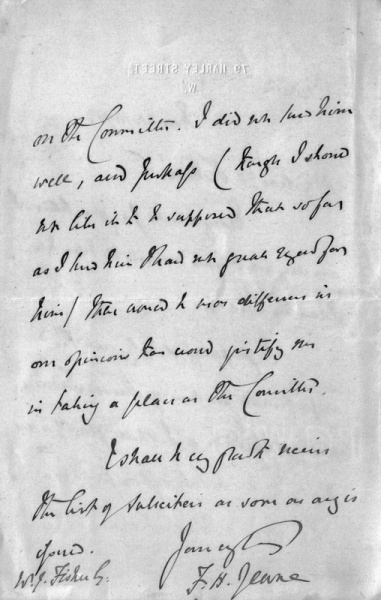 79 HARLEY STREET,
W.
on the Committee. I did not know him
well, and perhaps (though I should
not like it to be supposed that so far
as I knew him I had not great regard for
him) there would be more difference in
our opinions than would justify me
in taking a place on the Committee.
I shall be very glad to receive
the list of subscribers as soon as any is
issued.
F. H. Jeune
W. J. Fisher